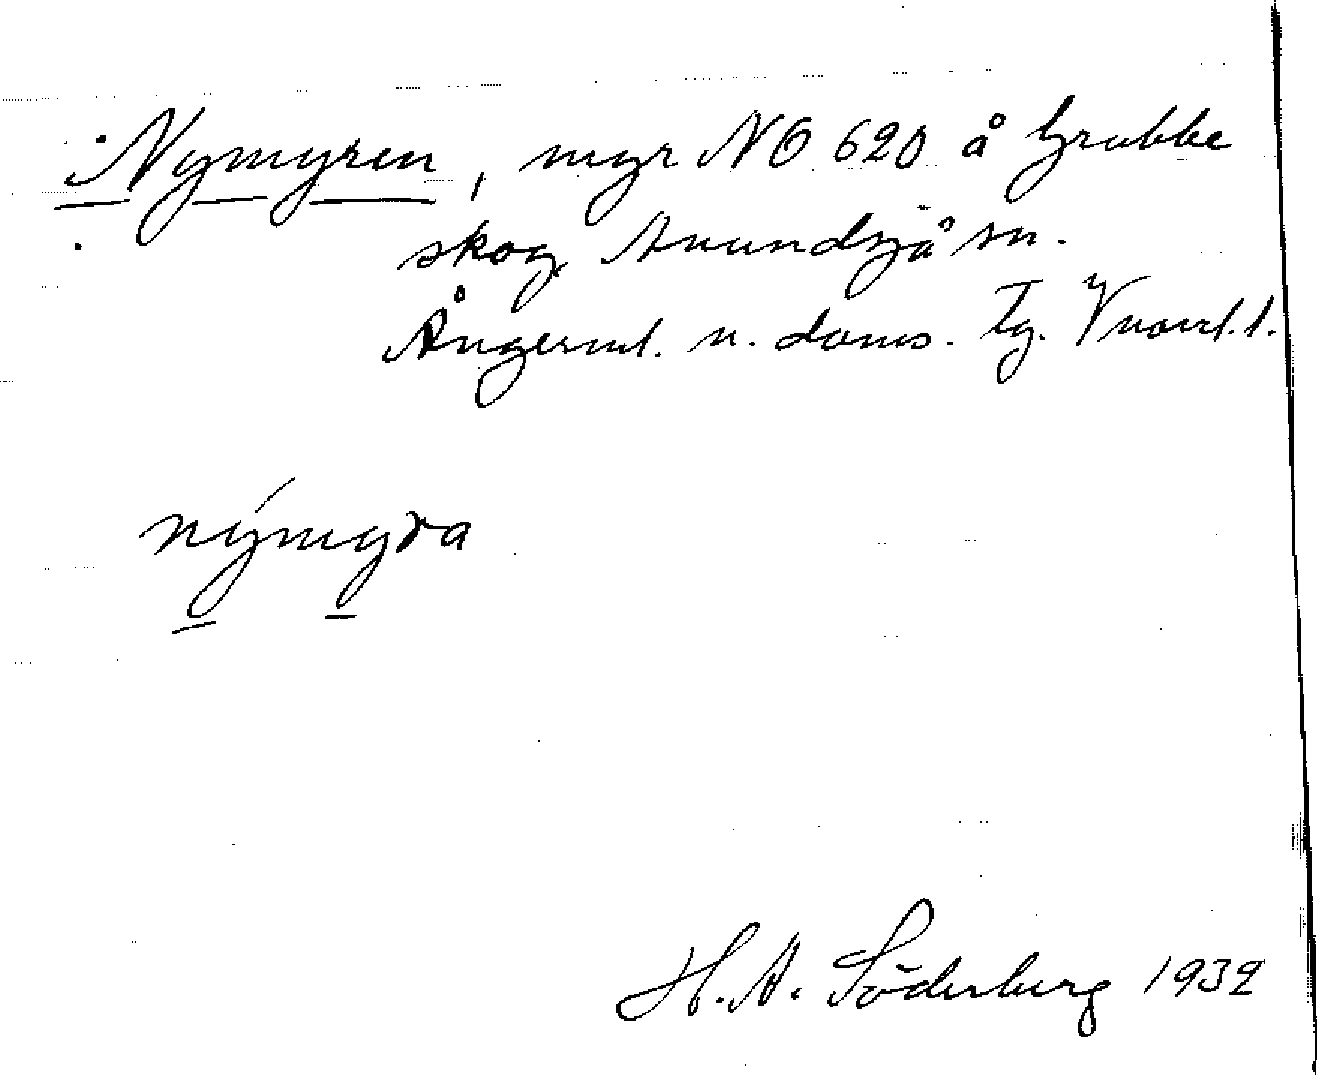 Nymyren, myr NO 620 å Grubbe
skog Anundsjö sn.
Ångerml. n. doms. Tg.
nýmyra
H. A. Söderberg 1932